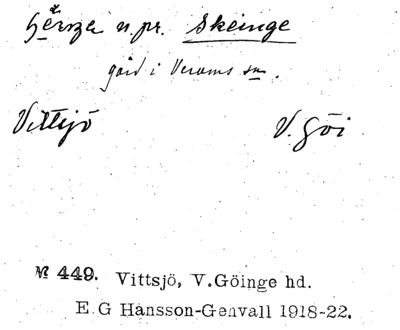 n. pr. Skeinge
gård i Verums sn.
Vittsjö V. Göi
№ 449. Vittsjö, V.Göinge hd.
E.G Hansson-Genvall 1918-22.